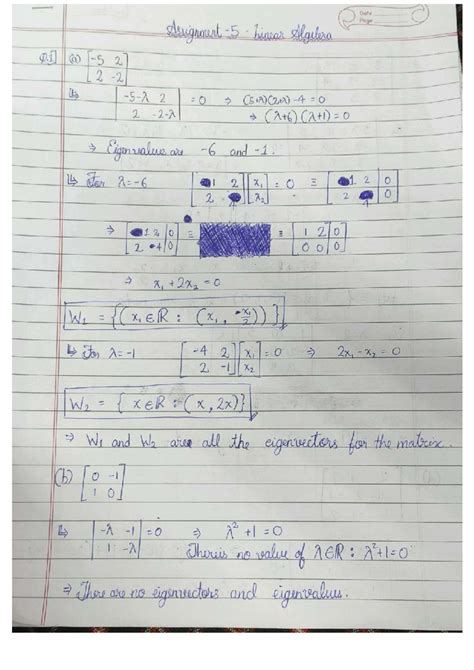 Date
Page
Assignment-5 - Linear Algebra
Q1] (a) [-5 2
2 -2]
↳ |-5-λ 2
2 -2-λ| = 0 ⇒ (5+λ)(2+λ)-4 = 0
⇒ (λ+6)(λ+1) = 0
⇒ Eigenvalues are -6 and -1.
↳ For λ=-6 [1 2
2] [x₁
x₂] = 0 ≡ [1 2 | 0
2 | 0]
⇒ [1 2 | 0
2 4 | 0] ≡ ≡ [1 2 | 0
0 0 | 0]
⇒ x₁ + 2x₂ = 0
W₁ = {(x₁ ∈ ℝ : (x₁, -x₁/2))}
↳ For λ=-1 [-4 2
2 -1] [x₁
x₂] = 0 ⇒ 2x₁ - x₂ = 0
W₂ = { x ∈ ℝ : (x, 2x)}
⇒ W₁ and W₂ are all the eigenvectors for the matrix.
(b) [0 -1
1 0]
↳ |-λ -1
1 -λ| = 0 ⇒ λ² + 1 = 0
There is no value of λ ∈ ℝ : λ²+1=0
⇒ There are no eigenvectors and eigenvalues.